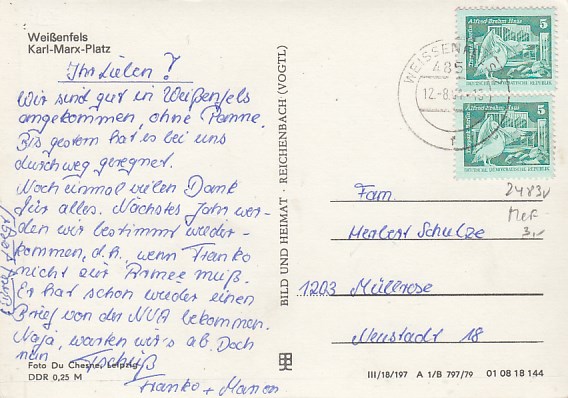 Weißenfels
Karl-Marx-Platz
Ihr Lieben!
Wir sind gut in Weißenfels
angekommen, ohne Panne.
Bis gestern hat es bei uns
durchweg geregnet.
Noch einmal vielen Dank
für alles. Nächstes Jahr wer-
den wir bestimmt wieder-
kommen, d.h., wenn Franko
nicht zur Armee muß.
Er hat schon wieder einen
Brief von der NVA bekommen.
Naja, warten wir's ab. Doch
nun Tschüß
Franko + Manon
(Brief folgt)
Foto Du Chesne, Leipzig
DDR 0,25 M
BILD UND HEIMAT · REICHENBACH (VOGTL)
WEISSENF
485
12.-8.
Alfred-Brehm-Haus
Tierpark Berlin
5
DEUTSCHE DEMOKRATISCHE REPUBLIK
Alfred-Brehm-Haus
Tierpark Berlin
5
DEUTSCHE DEMOKRATISCHE REPUBLIK
2483v
MeF
3,-
Fam.
Herbert Schulze
1203 Müllrose
Neustadt 18
III/18/197 A 1/B 797/79 01 08 18 144